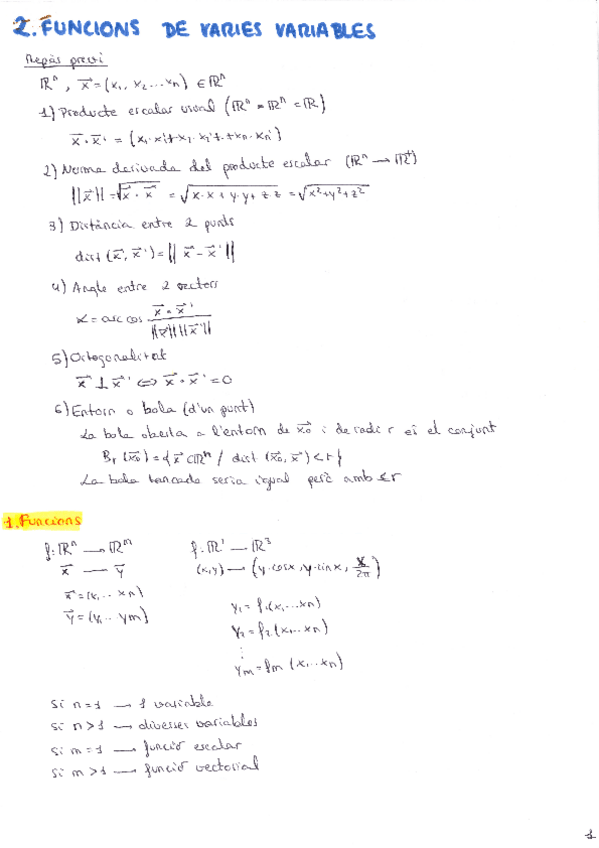 2. FUNCIONS DE VARIES VARIABLES
Repàs previ
ℝⁿ, x⃗ = (x₁, x₂ ... xₙ) ∈ ℝⁿ
1) Producte escalar usual (ℝⁿ × ℝⁿ = ℝ)
x⃗ · x⃗' = (x₁·x₁' + x₂·x₂' + ... + xₙ·xₙ')
2) Norma derivada del producte escalar (ℝⁿ → ℝ⁺)
||x⃗|| = √x⃗ · x⃗ = √x·x + y·y + z·z = √x²+y²+z²
3) Distància entre 2 punts
dist (x⃗, x⃗') = || x⃗ - x⃗' ||
4) Angle entre 2 vectors
α = arc cos x⃗ · x⃗' / ||x⃗|| ||x⃗'||
5) Octogonalitat
x⃗ ⊥ x⃗' ⇔ x⃗ · x⃗' = 0
6) Entorn o bola (d'un punt)
La bola oberta a l'entorn de x⃗₀ i de radi r és el conjunt
Bᵣ (x⃗₀) = { x⃗ ∈ ℝⁿ / dist (x⃗₀, x⃗) < r }
La bola tancada seria igual però amb ≤ r
1. Funcions
f: ℝⁿ → ℝᵐ f: ℝ² → ℝ³
x⃗ → y⃗ (x,y) → (y·cosx, y·sinx, x/2π)
x⃗ = (x₁ ... xₙ)
y⃗ = (y₁ ... yₘ)
y₁ = f₁(x₁ ... xₙ)
y₂ = f₂(x₁ ... xₙ)
⋮
yₘ = fₘ (x₁ ... xₙ)
Si n = 1 → 1 variable
Si n > 1 → diverses variables
Si m = 1 → funció escalar
Si m > 1 → funció vectorial
1